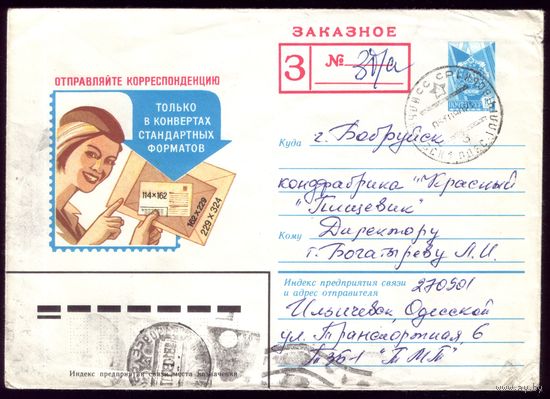 ЗАКАЗНОЕ
З №
ОТПРАВЛЯЙТЕ КОРРЕСПОНДЕНЦИЮ
ТОЛЬКО
В КОНВЕРТАХ
СТАНДАРТНЫХ
ФОРМАТОВ
114×162
162×229
229×324
Куда г. Бобруйск
конфабрика "Красный
"Пищевик"
Кому Директору
т. Богатыреву Л.И.
Индекс предприятия связи
и адрес отправителя 270901
Ильичевск, Одесской
ул. Транспортная, 6
"ТМП"
Индекс предприятия связи места назначения